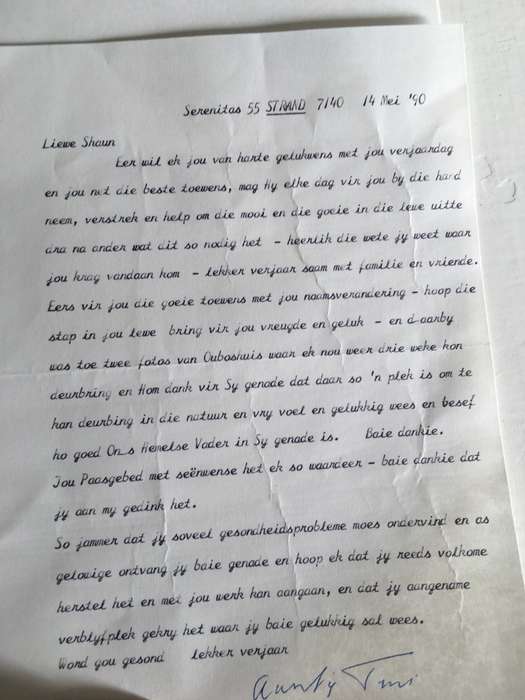 Serenitas 55 STRAND 7140 14 Mei '90
Liewe Shaun
Eer wil ek jou van harte gelukwens met jou verjaardag
en jou net die beste toewens, mag Hy elke dag vir jou by die hard
neem, versterk en help om die mooi en die goeie in die lewe uitte
dra na ander wat dit so nodig het - heerlik die wete jy weet waar
jou krag vandaan kom - lekker verjaar saam met familie en vriende.
Eers vir jou die goeie toewens met jou naamsverandering - hoop die
stap in jou lewe bring vir jou vreugde en geluk - en daarby
was toe twee fotos van Ouboshuis waar ek nou weer drie weke kon
deurbring en Hom dank vir Sy genade dat daar so 'n plek is om te
kan deurbing in die natuur en vry voel en gelukkig wees en besef
ho goed Ons Hemelse Vader in Sy genade is. Baie dankie.
Jou Paasgebed met seënwense het ek so waardeer - baie dankie dat
jy aan my gedink het.
So jammer dat jy soveel gesondheidsprobleme moes ondervind en as
gelowige ontvang jy baie genade en hoop ek dat jy reeds volkome
herstel het en met jou werk kan aangaan, en dat jy aangename
verblyfplek gekry het waar jy baie gelukkig sal wees.
Word gou gesond lekker verjaar
Aunty